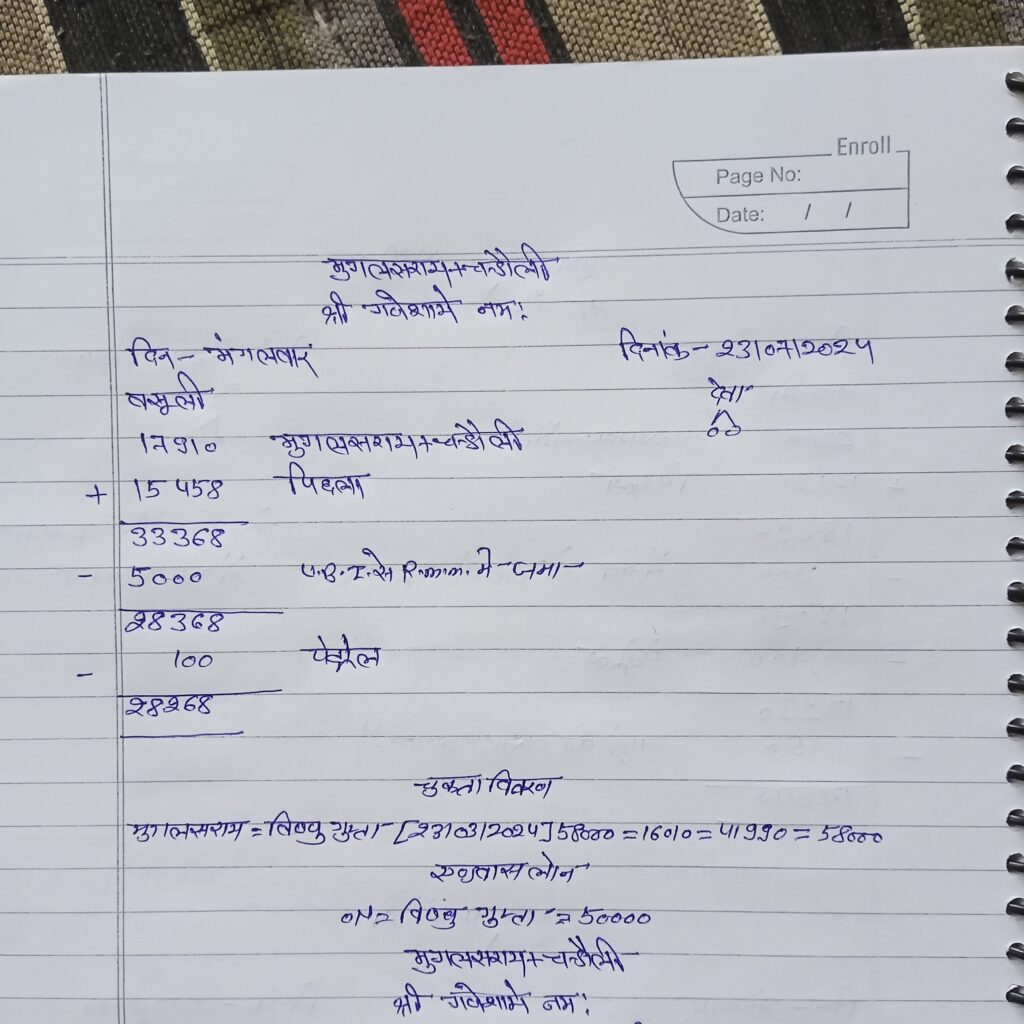 Enroll
Page No:
Date: / /
मुगलसराय+चन्दौली
श्री गणेशाये नमः
दिन - मंगलवार दिनांक - 23/07/2024
वसूली देता
17910 मुगलसराय+चन्दौली 00
+ 15458 पिछला
33368
- 5000 U.B.I. से R.m.m. मे जमा
28368
- 100 पेट्रोल
28268
चुकता विवरण
मुगलसराय = विष्णु गुप्ता [23/03/2024] 58000 = 16010 = 41990 = 58000
लोन
ON = विष्णु गुप्ता = 50000
मुगलसराय+चन्दौली
श्री गणेशाये नमः